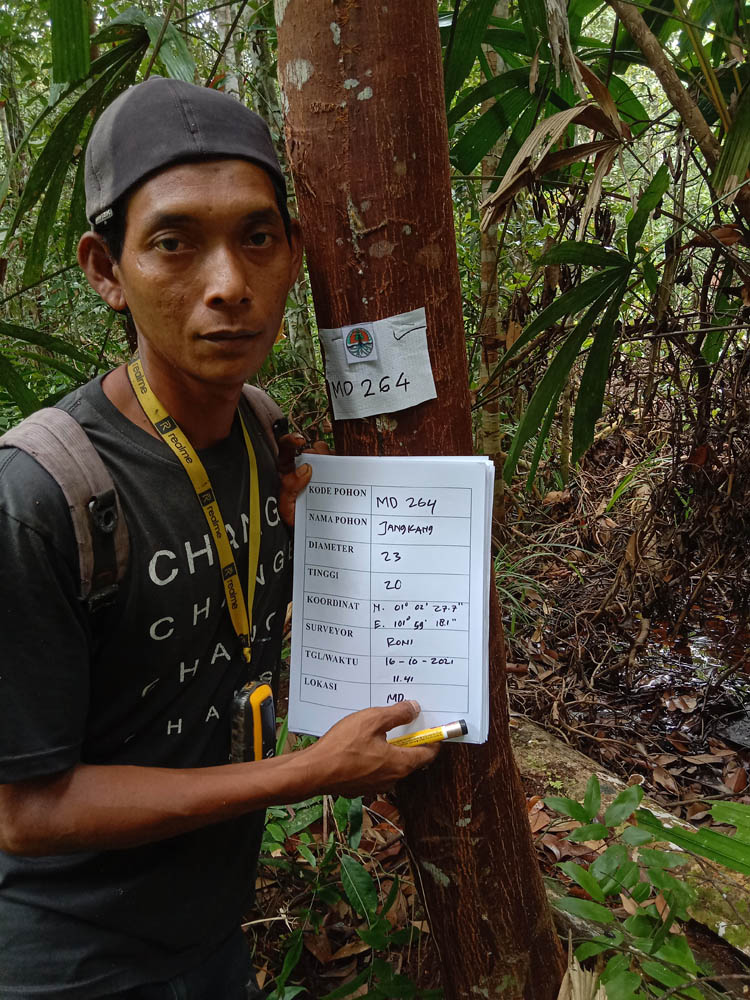 MD 264
KODE POHON MD 264
NAMA POHON JANGKANG
DIAMETER 23
TINGGI 20
KOORDINAT N. 01° 02' 27.7"
E. 101° 59' 18.1"
SURVEYOR RONI
TGL/WAKTU 16-10-2021
11.41
LOKASI MD
realme
realme
realme
CHANG
CHANGE
CHANG
CHA
HA